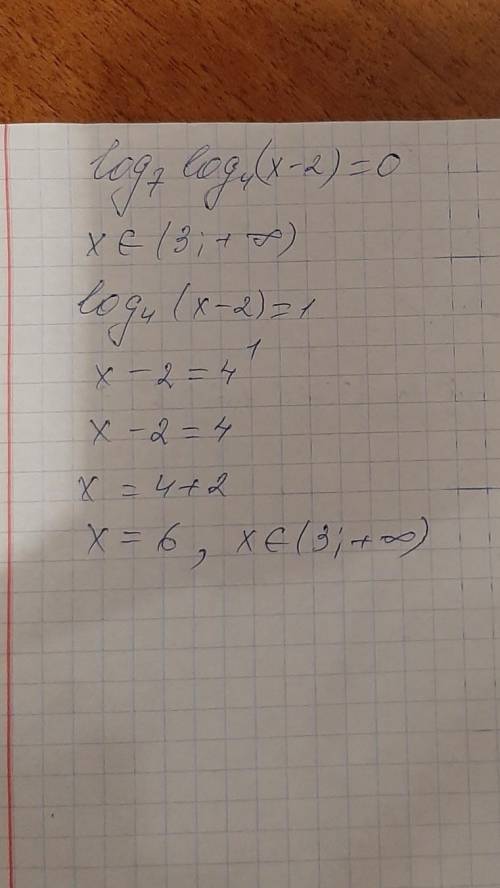 log₇ log₄(x-2)=0
x∈(3;+∞)
log₄(x-2)=1
x-2=4¹
x-2=4
x=4+2
x=6, x∈(3;+∞)